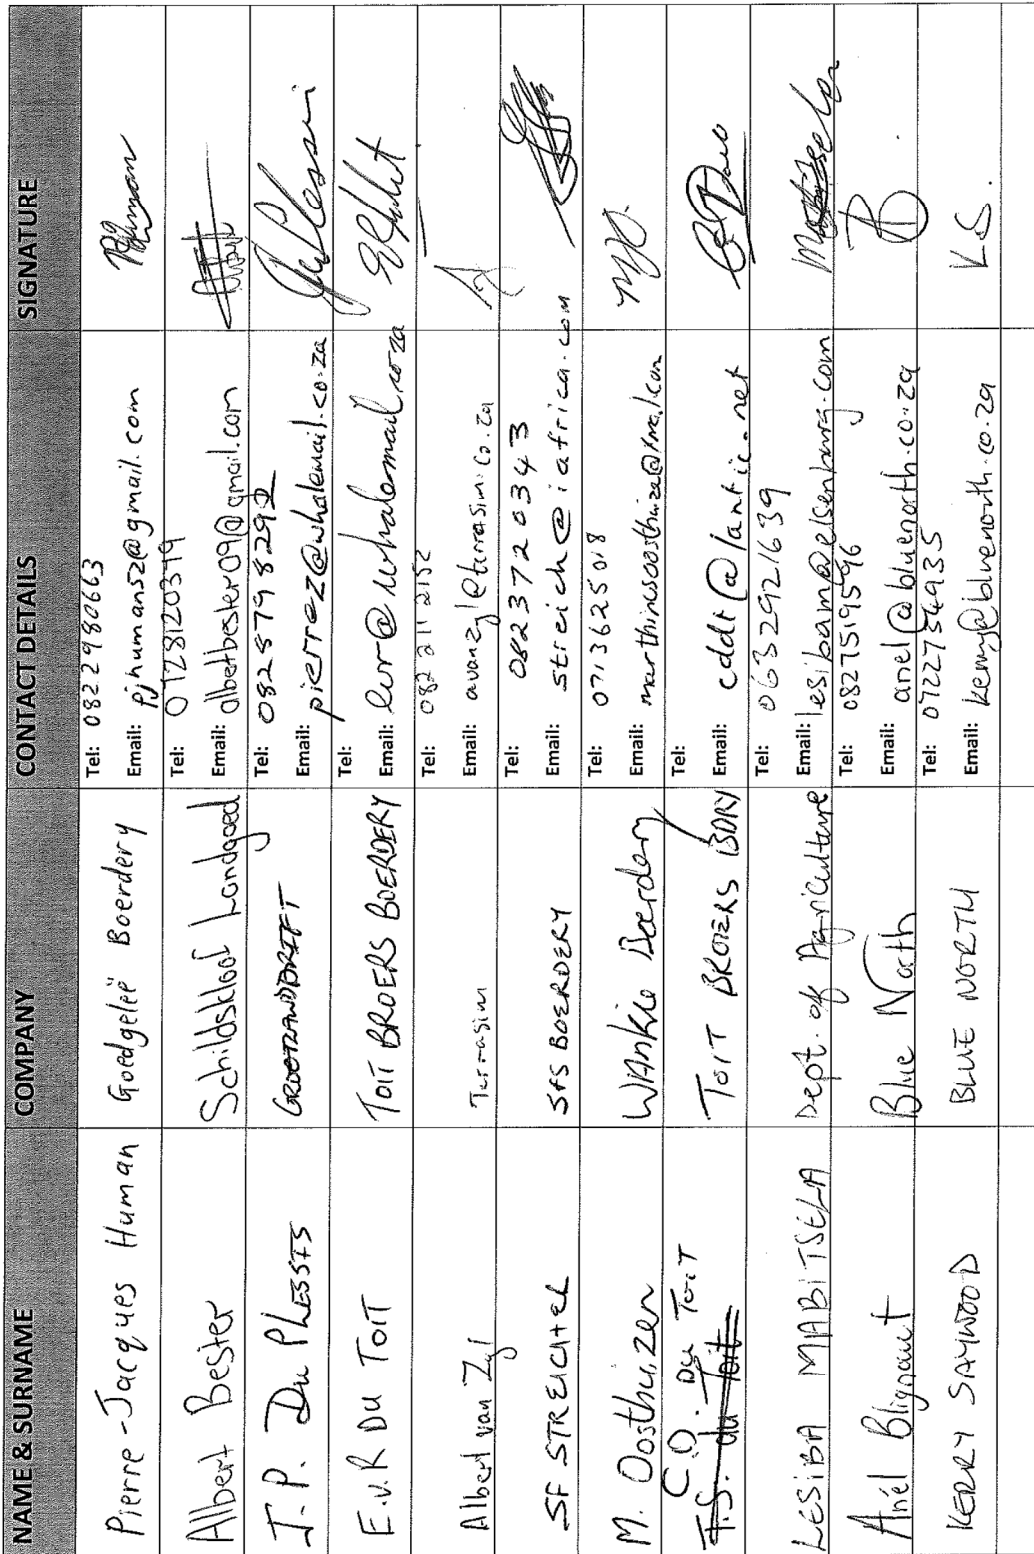 NAME & SURNAME COMPANY CONTACT DETAILS SIGNATURE
Pierre-Jacques Human Goedgeleë Boerdery Tel: 082 298063
Email: pjhuman52@gmail.com
Albert Bester Schildskloof Landgoed Tel: 0728120379
Email: albertbester09@gmail.com
J.P. Du Plessis GROOTRANDDRIFT Tel: 082 879 8292
Email: pierrez@whalemail.co.za
E.v.R DU TOIT TOIT BROERS BOERDERY Tel:
Email: evr@whalemail.co.za
Albert van Zyl Terrasim Tel: 082 211 2152
Email: avanzyl@terrasim.co.za
SF STREICHER SFS BOERDERY Tel: 082 372 0343
Email: streich@iafrica.com
M. Oosthuizen WANkie Boerdery Tel: 0713625018
Email:
C.O. Du Toit
T.S. du Toit TOIT BROERS BDRY Tel:
Email: eddt@lantic.net
LESIBA MABITSELA Dept. of Agriculture Tel: 0632921639
Email: lesibam@elsenburg.com
Anél Blignaut Blue North Tel: 0827519596
Email: anel@bluenorth.co.za
KERRY SAYWOOD BLUE NORTH Tel: 0722754935 K.S.
Email: kerry@bluenorth.co.za